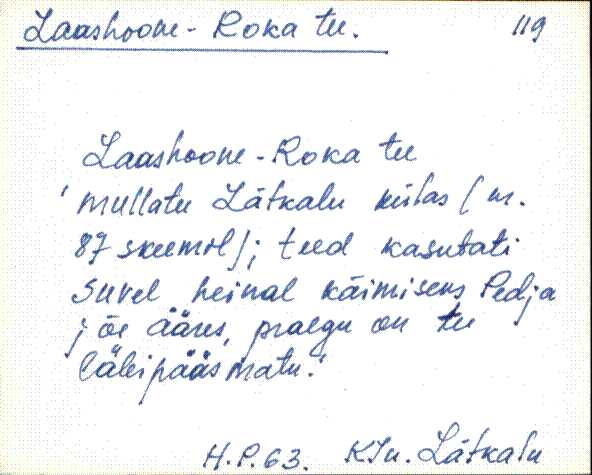 Laashoone - Roka tee. 119
Laashoone - Roka tee
mullatee Lätkalu külas (nr.
87 skeemil); teed kasutati
suvel heinal käimiseks Pedja
jõe ääres, praegu on tee
läbipääsmatu."
H.P. 63. KJn. Lätkalu